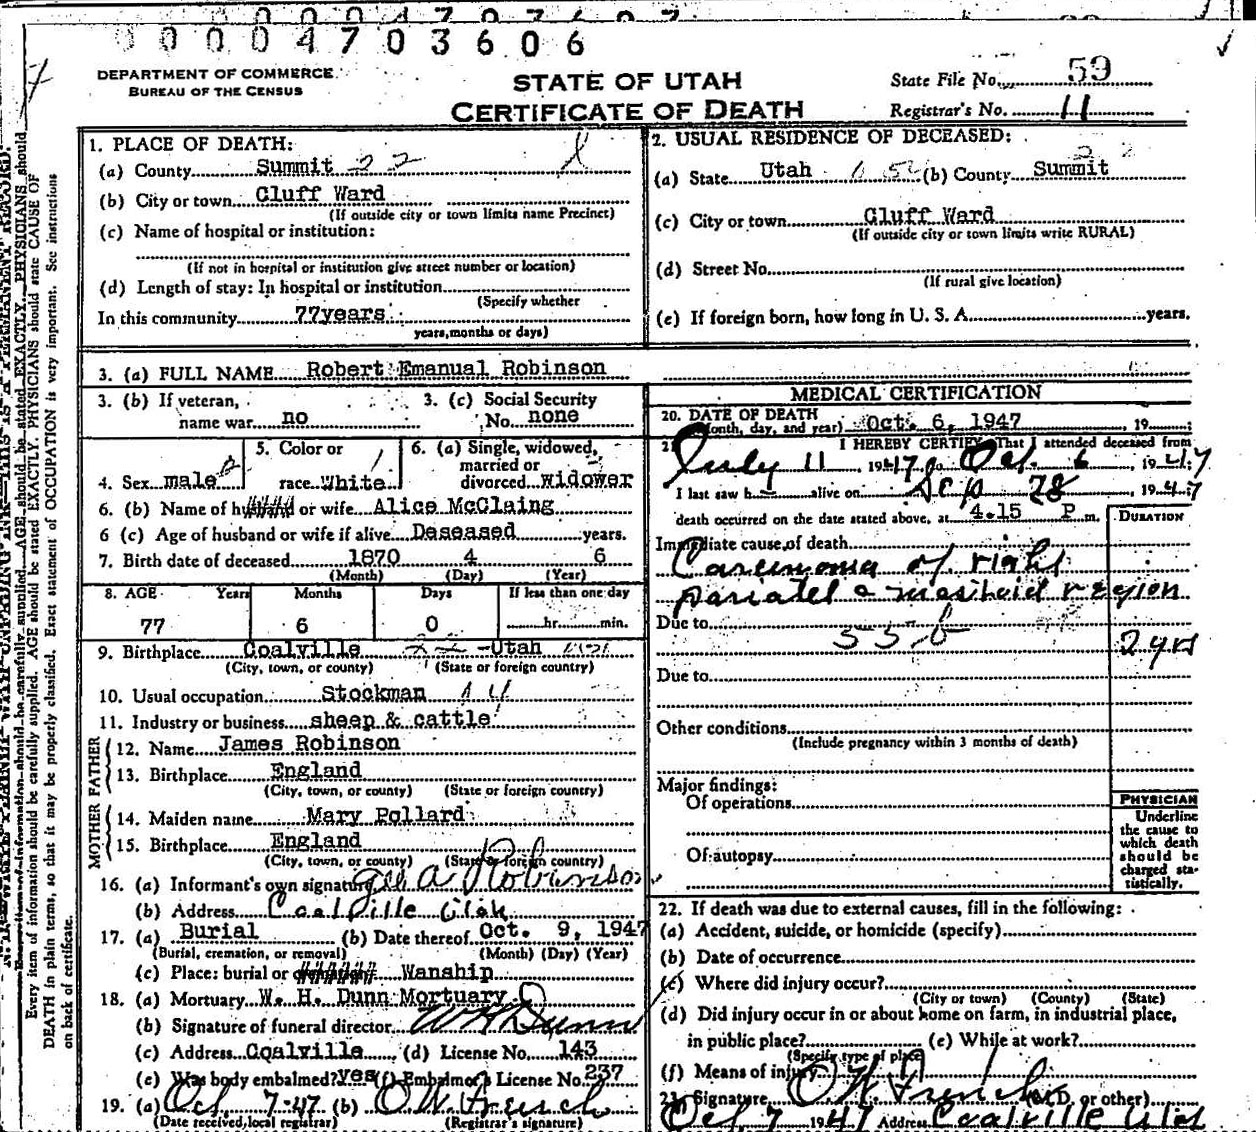 0 0 0 0 4 7 0 3 6 0 6
DEPARTMENT OF COMMERCE
BUREAU OF THE CENSUS
STATE OF UTAH
CERTIFICATE OF DEATH
State File No. 59
Registrar's No. 11
1. PLACE OF DEATH:
(a) County Summit 22
(b) City or town Cluff Ward
(If outside city or town limits name Precinct)
(c) Name of hospital or institution:
(If not in hospital or institution give street number or location)
(d) Length of stay: In hospital or institution
(Specify whether
In this community 77years
years, months or days)
2. USUAL RESIDENCE OF DECEASED:
(a) State Utah (b) County Summit
(c) City or town Cluff Ward
(If outside city or town limits write RURAL)
(d) Street No.
(If rural give location)
(e) If foreign born, how long in U. S. A. years.
3. (a) FULL NAME Robert Emanual Robinson
3. (b) If veteran, name war no
3. (c) Social Security No. none
4. Sex male
5. Color or race White
6. (a) Single, widowed, married or divorced widower
6. (b) Name of h#### or wife Alice McClaing
6 (c) Age of husband or wife if alive Deseased years.
7. Birth date of deceased 1870 4 6
(Month) (Day) (Year)
8. AGE Years Months Days If less than one day
77 6 0 hr. min.
9. Birthplace Coalville 22 -Utah
(City, town, or county) (State or foreign country)
10. Usual occupation Stockman 14
11. Industry or business sheep & cattle
FATHER
12. Name James Robinson
13. Birthplace England
(City, town, or county) (State or foreign country)
MOTHER
14. Maiden name Mary Pollard
15. Birthplace England
(City, town, or county) (State or foreign country)
16. (a) Informant's own signature A Robinson
(b) Address Coalville Utah
17. (a) Burial (b) Date thereof Oct. 9, 1947
(Burial, cremation, or removal) (Month) (Day) (Year)
(c) Place: burial or Wanship
18. (a) Mortuary W. H. Dunn Mortuary
(b) Signature of funeral director W H Dunn
(c) Address Coalville (d) License No. 143
(e) Was body embalmed? yes (f) Embalmer's License No. 237
19. (a) Oct 7-47 (b) O W French
(Date received, local registrar) (Registrar's signature)
MEDICAL CERTIFICATION
20. DATE OF DEATH
(Month, day, and year) Oct. 6, 1947, 19
21. I HEREBY CERTIFY, That I attended deceased from
July 11, 1947 to Oct. 6, 1947
I last saw h alive on Sep 28, 1947
death occurred on the date stated above, at 4.15 P m.
DURATION
Immediate cause of death
Carcinoma of right
mastoid region
Due to 55-b
2 yrs
Due to
Other conditions
(Include pregnancy within 3 months of death)
Major findings:
Of operations
Of autopsy
PHYSICIAN
Underline
the cause to
which death
should be
charged sta-
tistically.
22. If death was due to external causes, fill in the following:
(a) Accident, suicide, or homicide (specify)
(b) Date of occurrence
(c) Where did injury occur?
(City or town) (County) (State)
(d) Did injury occur in or about home on farm, in industrial place,
in public place? (e) While at work?
(Specify type of place)
(f) Means of injury
23. Signature O W French (M.D. or other)
Oct 7 1947 Address Coalville Utah
Every item of information should be carefully supplied. AGE should be stated EXACTLY. PHYSICIANS should state CAUSE OF
DEATH in plain terms, so that it may be properly classified. Exact statement of OCCUPATION is very important. See instructions
on back of certificate.